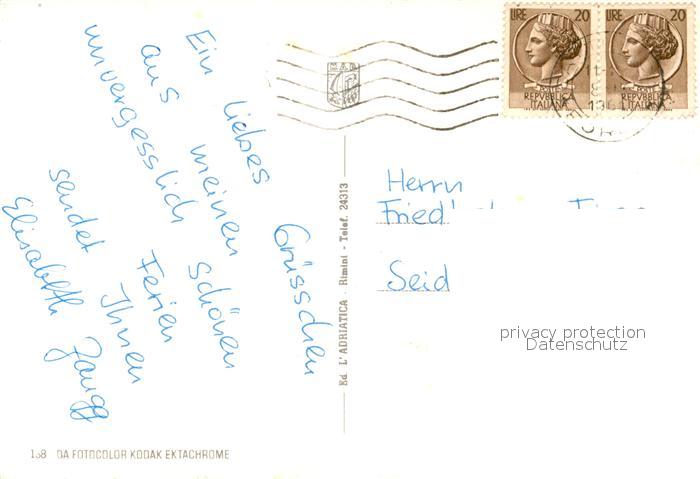 Ein liebes Grüsschen
aus meinen schönen
unvergesslich Ferien
sendet Ihnen
Elisabeth Zaugg
LIRE 20
LIRE 20
POSTE
REPVBBLICA
ITALIANA
REPVBBLICA
ITALIANA
Herrn
Fried
Seid
Ed. L'ADRIATICA - Rimini - Telef. 24313
privacy protection
Datenschutz
DA FOTOCOLOR KODAK EKTACHROME